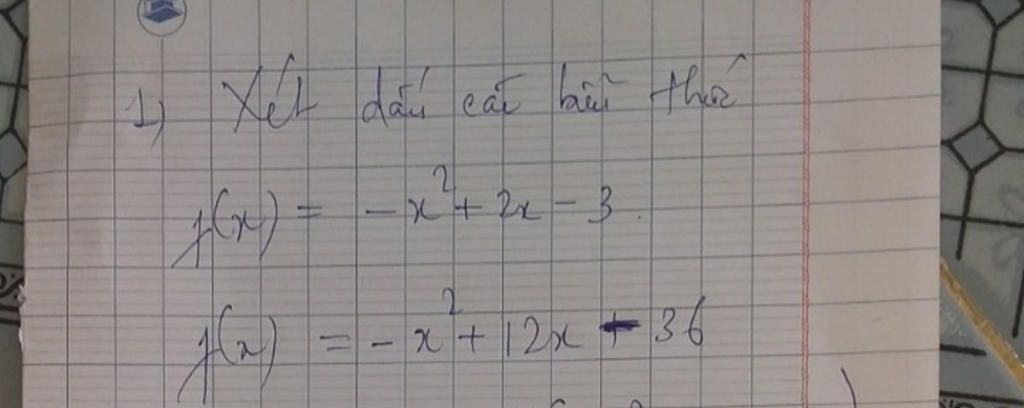 1) Xét dấu các biểu thức
f(x) = -x² + 2x - 3.
f(x) = -x² + 12x - 36